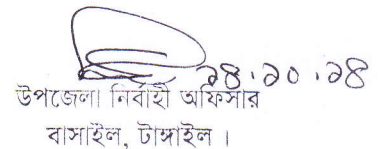 ২৪.১০.২৪
উপজেলা নির্বাহী অফিসার
বাসাইল, টাঙ্গাইল ।